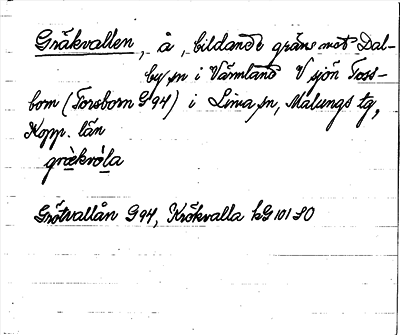 Gräkvallen, å, bildande gräns mot Dal-
by sn i Värmland V sjön Foss-
bom (Forsborn G 94) i Lima sn, Malungs tg,
Kopp. län
grækvòla
Grötvallån G 94, Kräkvalla kG 101 SO